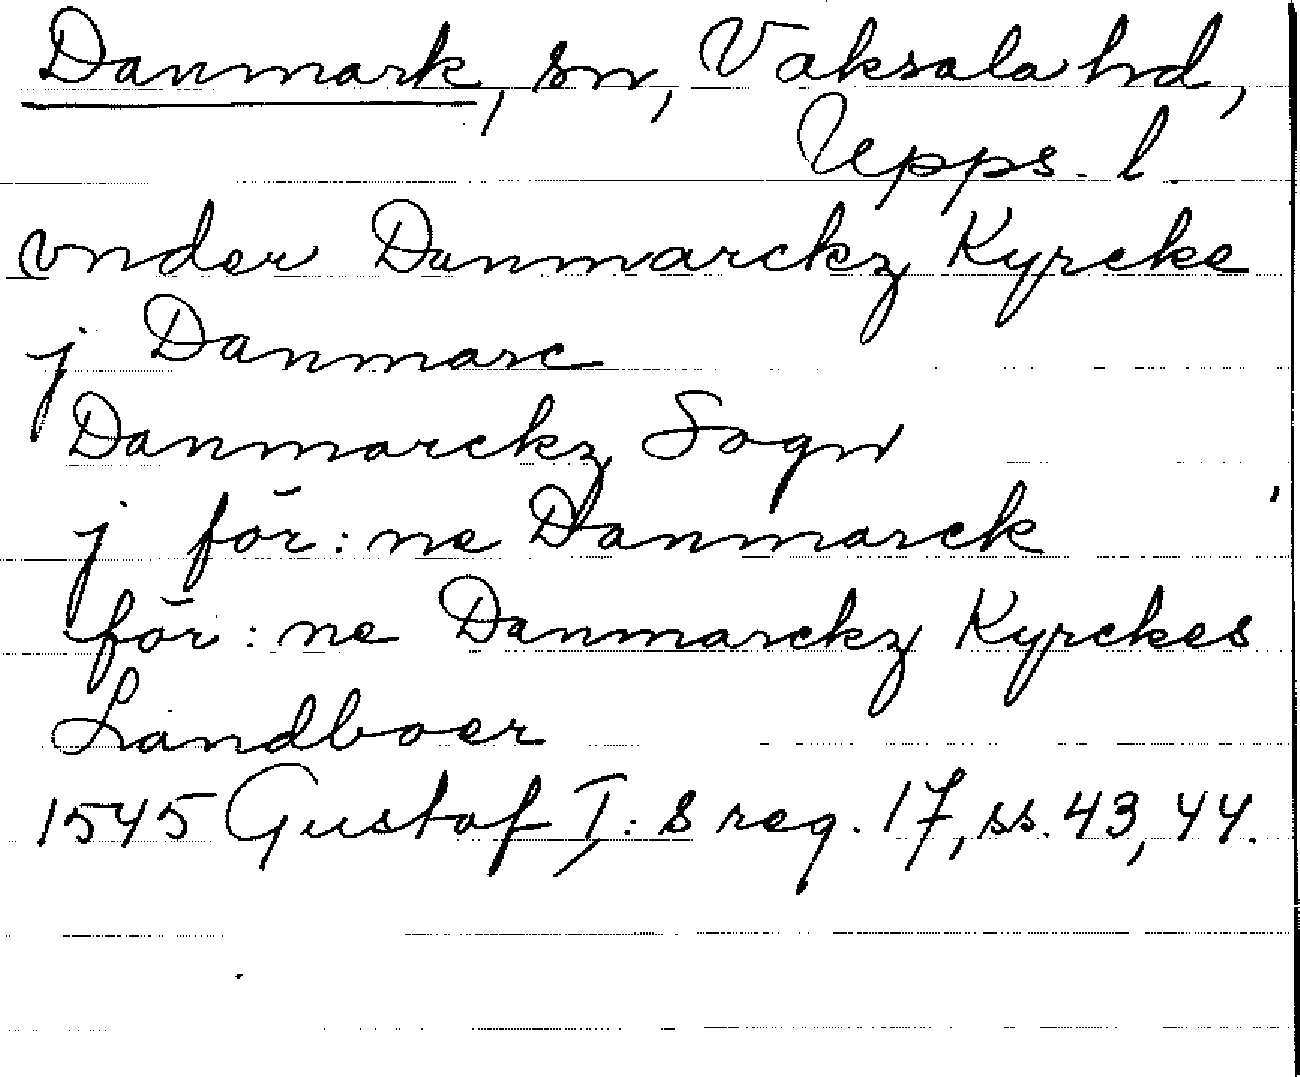 Danmark, sn, Vaksala hd,
Upps. l.
vnder Danmarckz Kyrcke
j Danmarc
Danmarckz Sogn
j för: ne Danmarck
för: ne Danmarckz Kyrckes
Landboer
1545 Gustaf I: s reg. 17, ss. 43, 44.